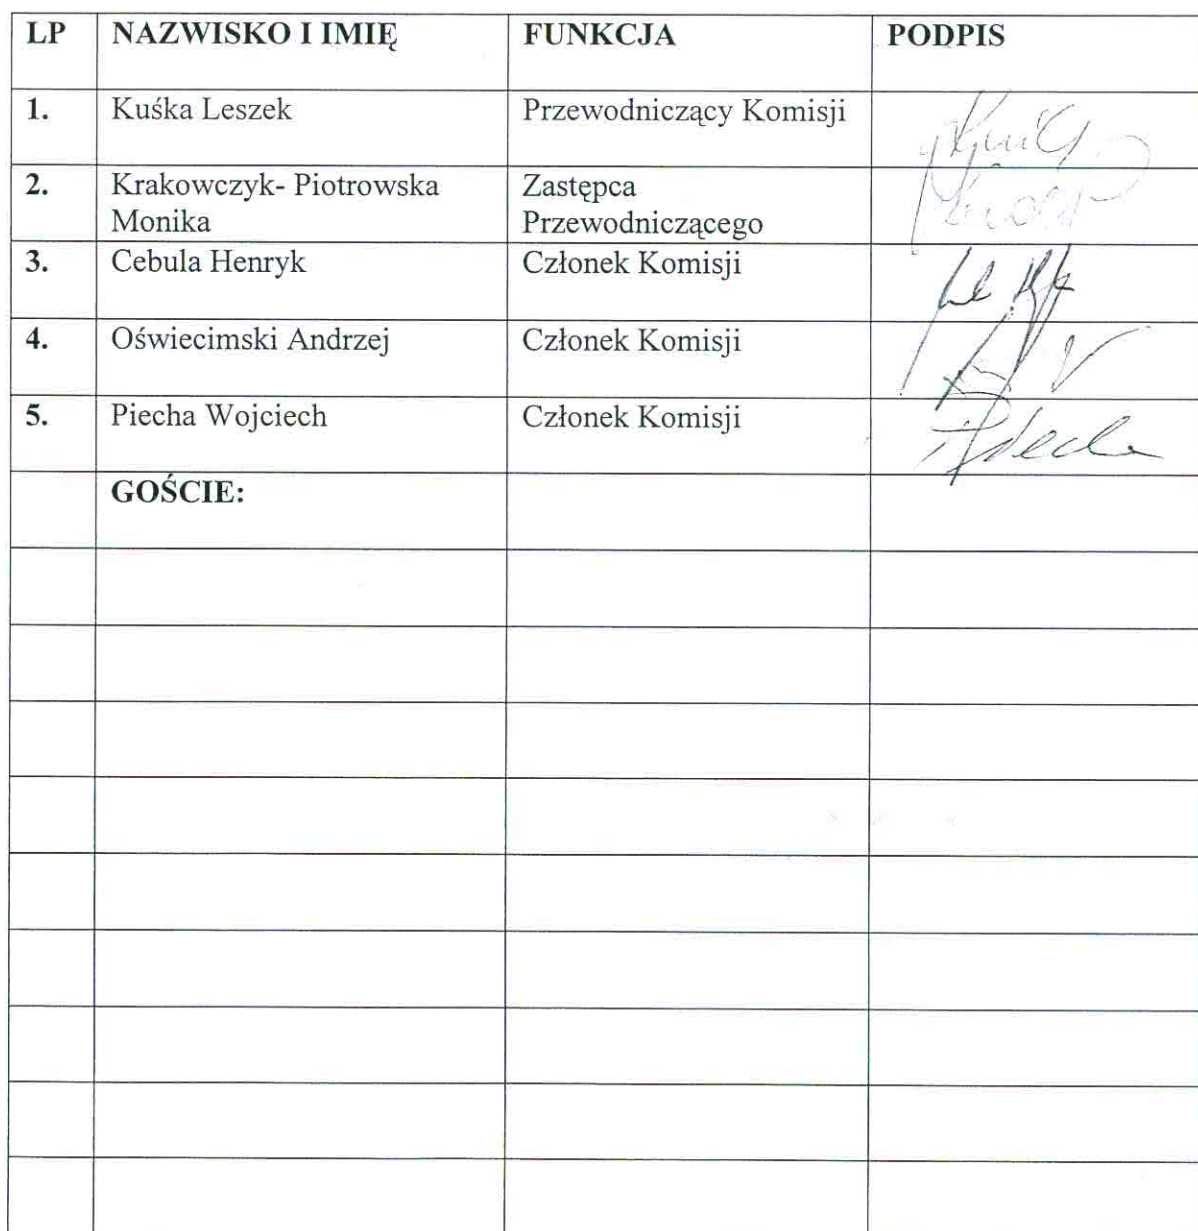 LP NAZWISKO I IMIĘ FUNKCJA PODPIS
1. Kuśka Leszek Przewodniczący Komisji
2. Krakowczyk- Piotrowska Zastępca
Monika Przewodniczącego
3. Cebula Henryk Członek Komisji
4. Oświecimski Andrzej Członek Komisji
5. Piecha Wojciech Członek Komisji
GOŚCIE: